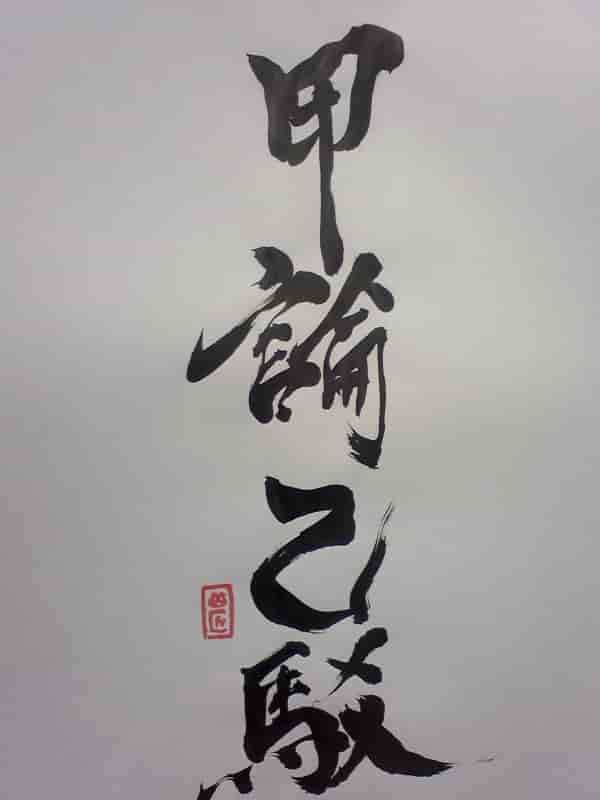 甲論乙駁